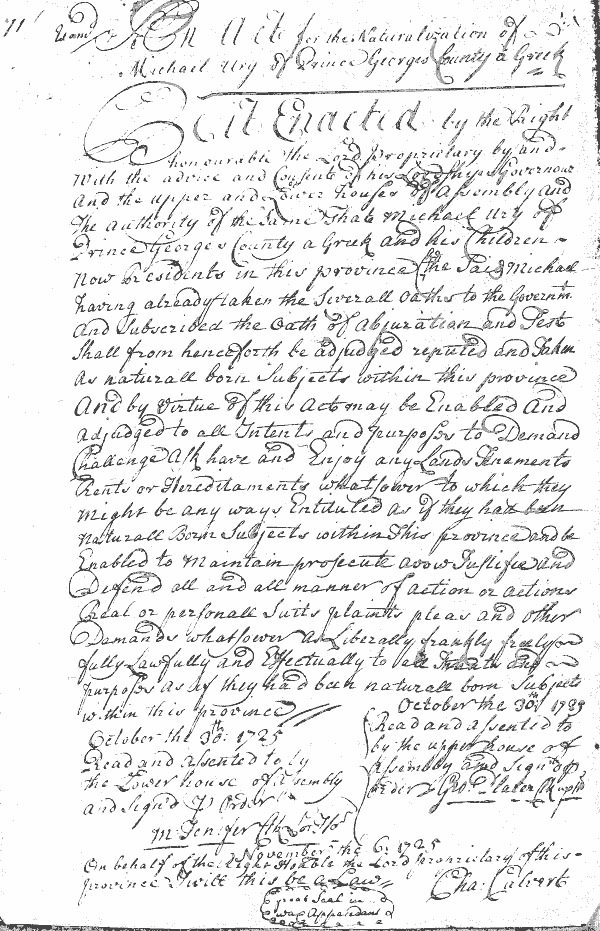 71
An Act for the Naturalization of
Michael Ury of Prince Georges County a Greek
Be it Enacted by the Right
honourable the Lord Proprietary by and
With the advice and Consent of his Lordships Governour
and the upper and Lower houses of Assembly and
the authority of the same That Michael Ury of
Prince Georges County a Greek and his Children
now Residents in this province (the Said Michael
having already taken the Severall Oaths to the Governmt.
and Subscribed the Oath of Abjuration and Test
Shall from henceforth be adjudged reputed and Taken
as naturall born Subjects within this province
And by Virtue of this Act may be Enabled And
adjudged to all Intents and purposes to Demand
Challenge Ask have and Enjoy any Lands Tenements
Rents or Hereditaments whatsower to which they
might be any ways Entituled as if they had been
naturall Born Subjects within this province and be
Enabled to Maintain prosecute avow Justifie and
Defend all and all manner of action or actions
Real or personall Suits plaints pleas and other
Demands whatsower as Liberally frankly freely
fully Lawfully and Effectually to all Intents and
purposes as if they had been naturall born Subjects
within this province
October the 30th: 1725
Read and assented to by
the Lower house of Assembly
and Signd P Order
M: Jenifer Cl Lo: Ho:
October the 30th 1725
Read and assented to
by the upper house of
Assembly and Signd P
order
November the 6: 1725
On behalf of the Right Honble the Lord Proprietary of this
province I will this be a Law
Cha: Calvert
Great Seal in
wax Appendant